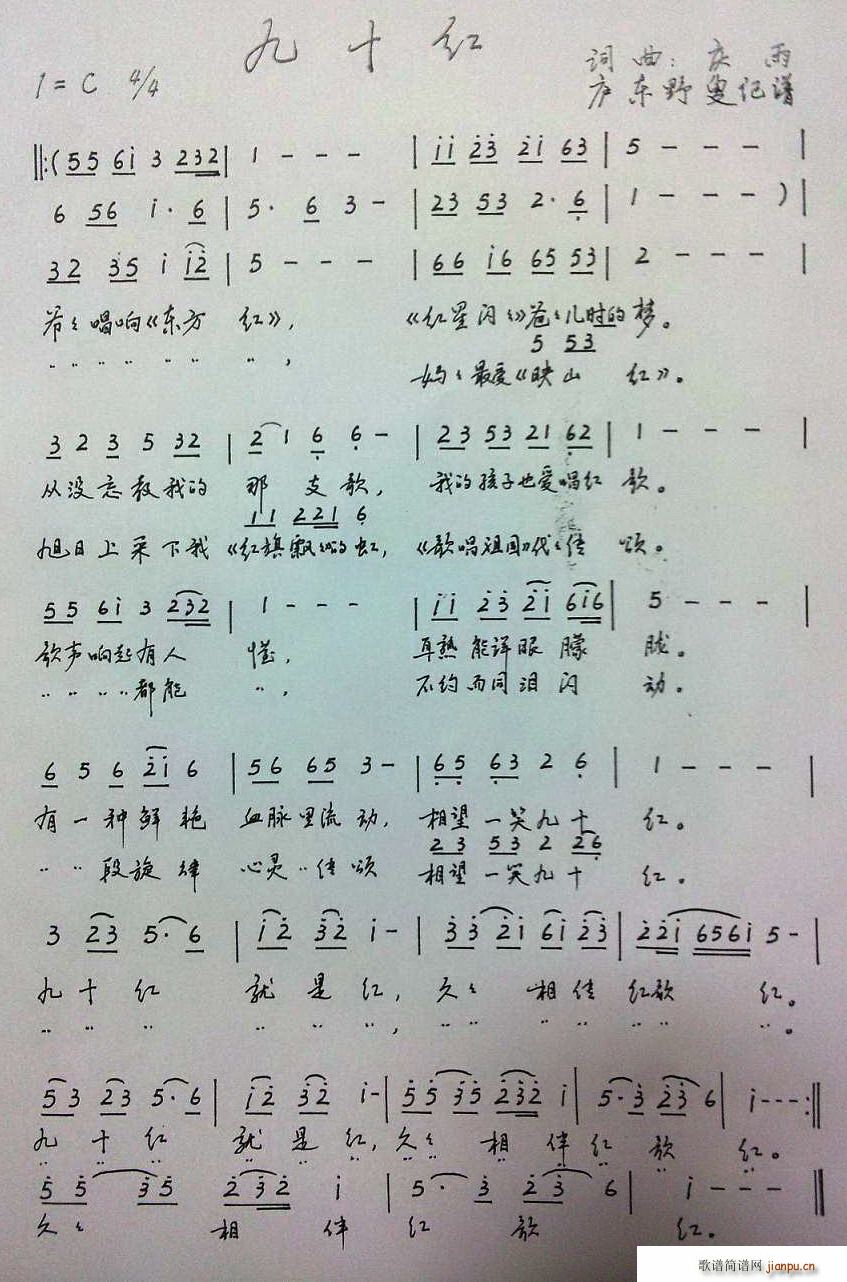 九十红
1=C 4/4
词曲:庆雨
庐东野叟记谱
‖:(55 6i 3 232 | 1 - - - | ii 23 2i 63 | 5 - - - |
6 56 i· 6 | 5· 6 3 - | 23 53 2· 6 | 1 - - - )|
32 35 i i2 | 5 - - - | 66 i6 65 53 | 2 - - - |
爷〻唱响《东方红》, 《红星闪〻》爸〻儿时的梦。
5 53
〃 〃 〃 〃 〃 〃, 妈〻最爱《映山红》。
3 2 3 5 32 | 2 1 6 6 - | 23 53 21 62 | 1 - - - |
从没忘教我的那支歌, 我的孩子也爱唱红歌。
11 221 6
旭日上采下我《红旗飘〻》的虹, 《歌唱祖国》代〻传颂。
55 6i 3 232 | 1 - - - | ii 23 2i 6i6 | 5 - - - |
歌声响起有人懂, 耳熟能详眼朦胧。
〃 〃 〃 〃 都能 〃, 不约而同泪闪动。
6 5 6 2i 6 | 56 65 3 - | 65 63 2 6 | 1 - - - |
有一种鲜艳血脉里流动, 相望一笑九十红。
23 53 2 26
〃 〃 段旋律心灵 〃 传颂 相望一笑九十红。
3 23 5· 6 | i2 32 i - | 33 2i 6i 23 | 22i 656i 5 - |
九十红就是红, 久〻相传红歌红。
〃 〃 〃 〃 〃 〃, 〃 〃 〃 〃 〃 〃 〃。
53 23 5· 6 | i2 32 i - | 55 35 232 i | 5· 3 23 6 | i - - - :‖
九十红就是红, 久〻相伴红歌红。
〃 〃 〃 〃 〃 〃 〃 〃 〃 〃 〃 〃 〃
5 5 35 232 i | 5· 3 2 3 6 | i - - - ‖
久〻相伴红歌红。
歌谱简谱网 jianpu.cn